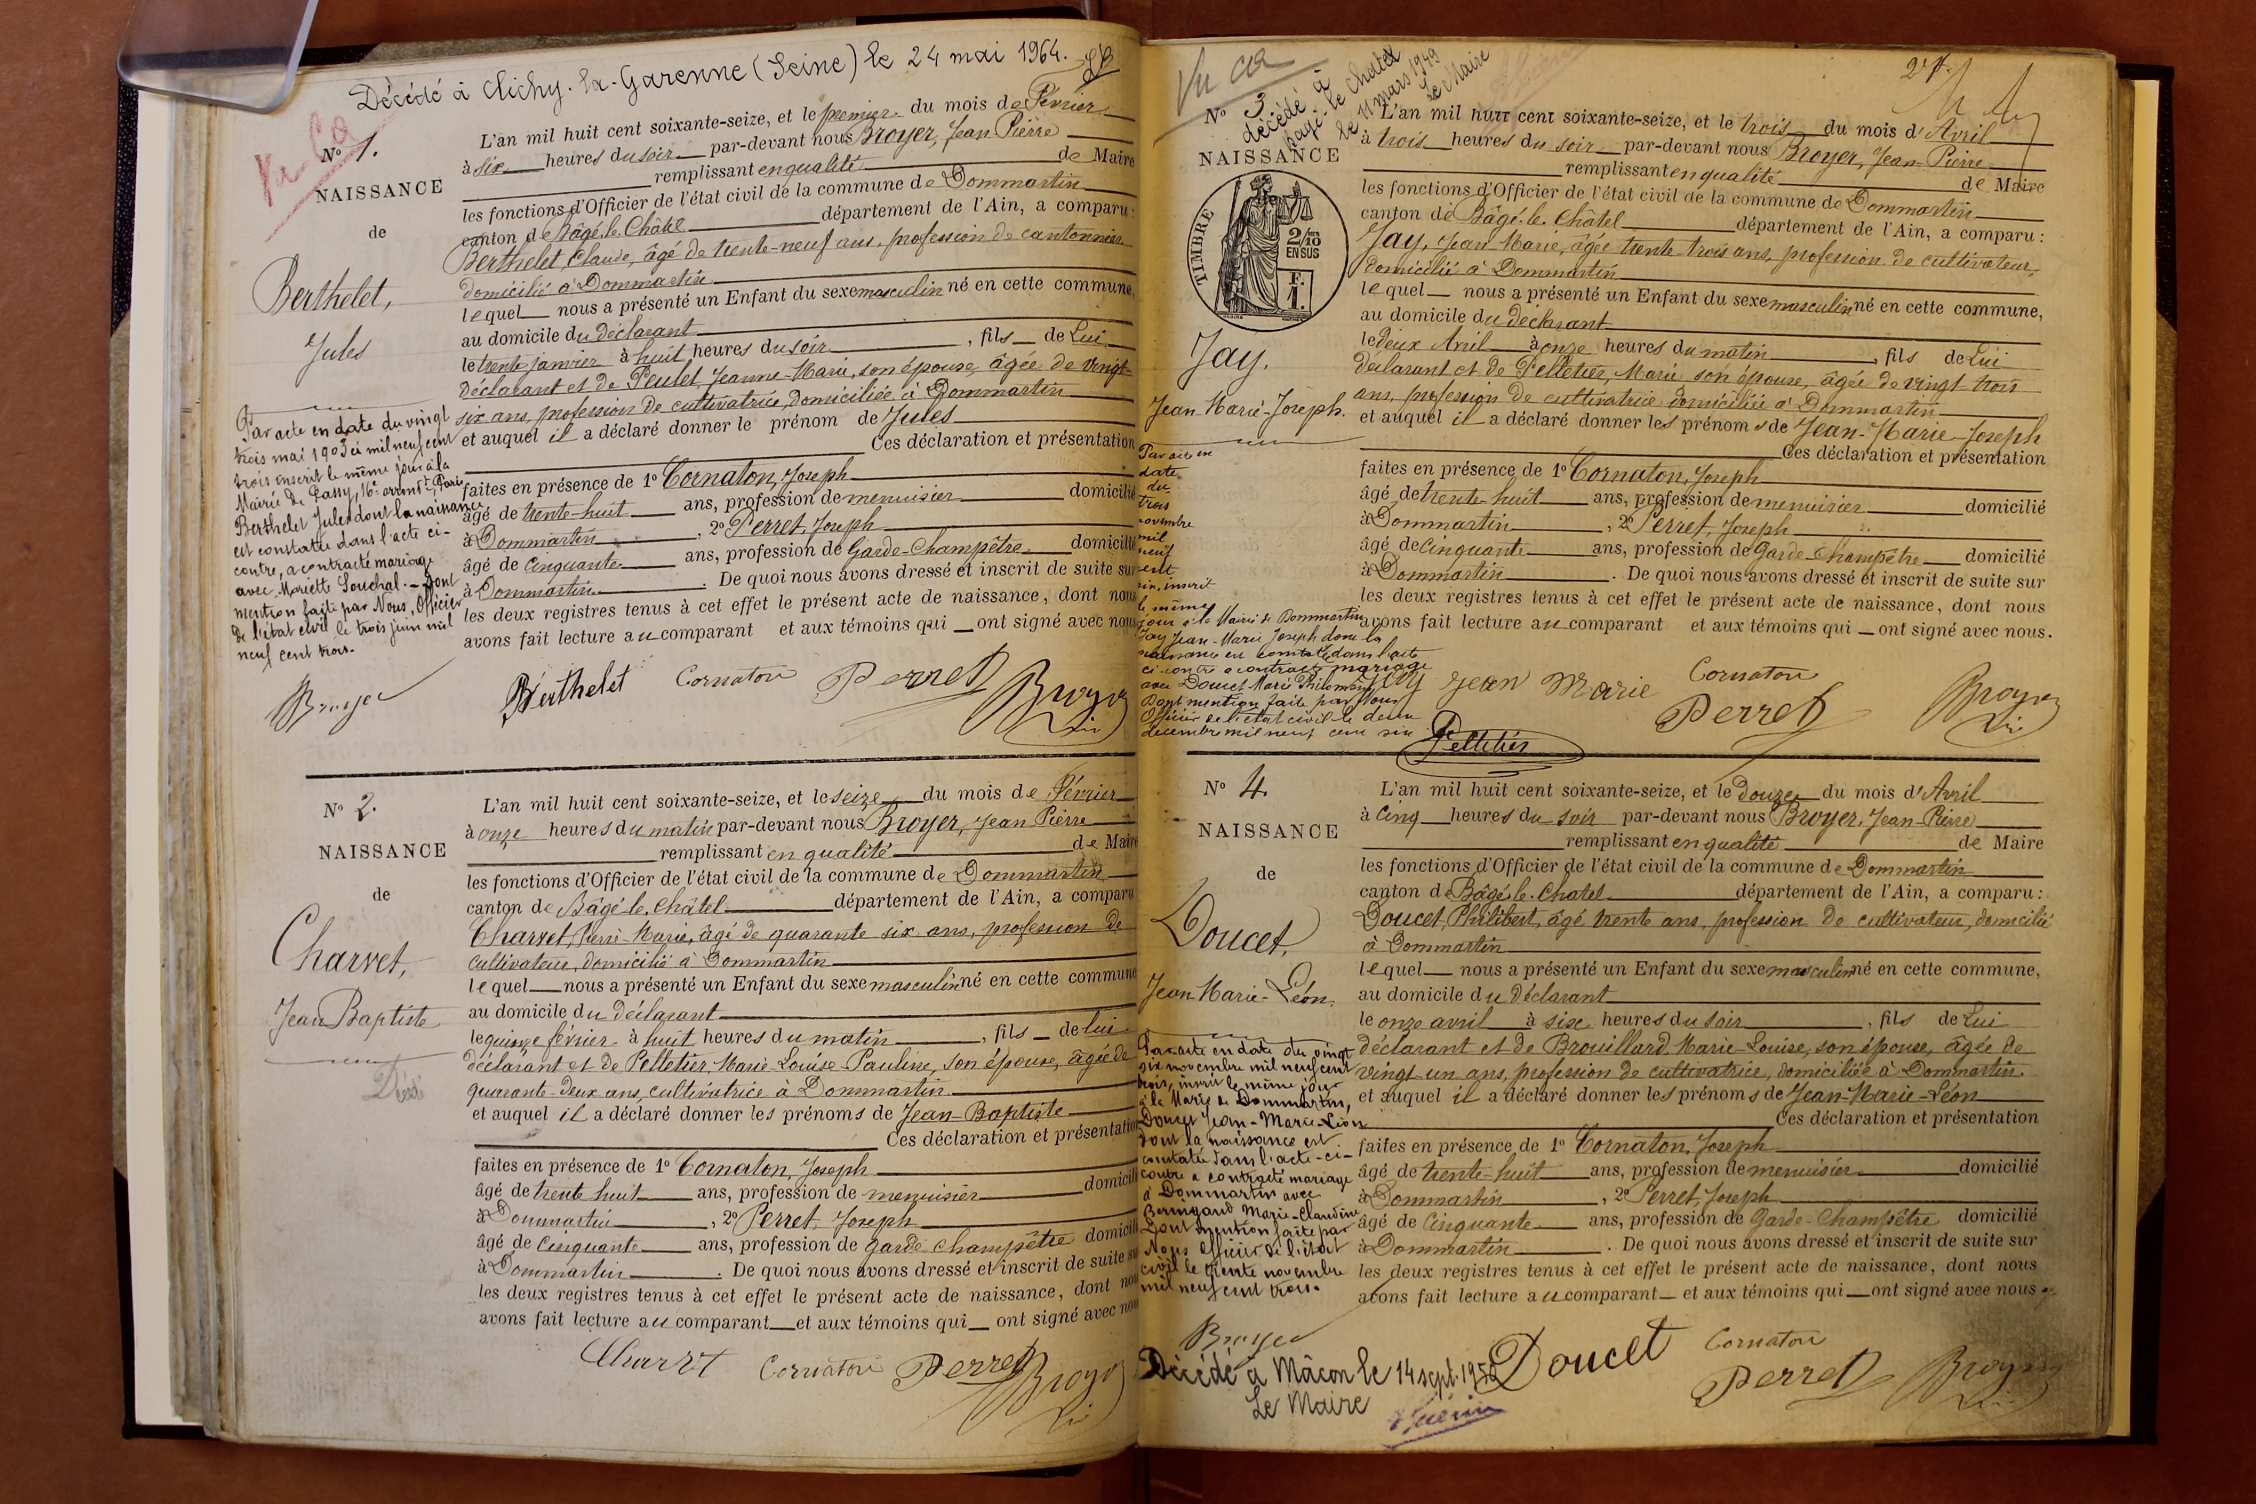 Décédé à Clichy-la-Garenne (Seine) le 24 mai 1964.
Vu Ca
N° 1.
NAISSANCE
de
Berthelet,
Jules
Par acte en date du vingt
trois mai 1903 ei mil neuf cent
trois inscrit le même jour à la
Mairie de Passy, 16e arrondt, Paris
Berthelet Jules dont la naissance
est constatée dans l'acte ci-
contre, a contracté mariage
avec Mariette Souchal. — Dont
mention faite par Nous, Officier
de l'état civil le trois juin mil
neuf cent trois.
Broyer
L'an mil huit cent soixante-seize, et le premier du mois de Février
à six heures du soir par-devant nous Broyer, Jean Pierre
remplissant en qualité de Maire
les fonctions d'Officier de l'état civil de la commune de Dommartin
canton de Bâgé-le-Châtel département de l'Ain, a comparu:
Berthelet, Claude, âgé de trente-neuf ans, profession de cantonnier
domicilié à Dommartin
lequel nous a présenté un Enfant du sexe masculin né en cette commune,
au domicile du déclarant
le trente janvier à huit heures du soir, fils de Lui
déclarant et de Peulet, Jeanne-Marie, son épouse, âgée de vingt-
six ans, profession de cultivatrice, domiciliée à Dommartin
et auquel il a déclaré donner le prénom de Jules
Ces déclaration et présentation
faites en présence de 1° Cornaton, Joseph
âgé de trente-huit ans, profession de menuisier domicilié
à Dommartin, 2° Perret, Joseph
âgé de cinquante ans, profession de Garde-Champêtre domicilié
à Dommartin. De quoi nous avons dressé et inscrit de suite sur
les deux registres tenus à cet effet le présent acte de naissance, dont nous
avons fait lecture au comparant et aux témoins qui ont signé avec nous
Berthelet Cornaton Perret Broyer
N° 2.
NAISSANCE
de
Charvet,
Jean Baptiste
Décédé
L'an mil huit cent soixante-seize, et le seize du mois de Février
à onze heures du matin par-devant nous Broyer, Jean Pierre
remplissant en qualité de Maire
les fonctions d'Officier de l'état civil de la commune de Dommartin
canton de Bâgé-le-Châtel département de l'Ain, a comparu
Charvet, Pierre-Marie, âgé de quarante six ans, profession de
cultivateur, domicilié à Dommartin
lequel nous a présenté un Enfant du sexe masculin né en cette commune
au domicile du déclarant
le quinze février à huit heures du matin, fils de lui
déclarant et de Pelletier, Marie-Louise Pauline, son épouse, âgée de
quarante-deux ans, cultivatrice à Dommartin
et auquel il a déclaré donner les prénoms de Jean-Baptiste
Ces déclaration et présentation
faites en présence de 1° Cornaton, Joseph
âgé de trente huit ans, profession de menuisier domicilié
à Dommartin, 2° Perret, Joseph
âgé de cinquante ans, profession de garde champêtre domicilié
à Dommartin. De quoi nous avons dressé et inscrit de suite sur
les deux registres tenus à cet effet le présent acte de naissance, dont nous
avons fait lecture au comparant et aux témoins qui ont signé avec nous
Charvet Cornaton Perret Broyer
Vu Ca
27.
N° 3
décédé à
Bagé-le-Chatel
le 11 mars 1949
Le Maire
NAISSANCE
TIMBRE
2/10 EN SUS
F. 1.
Jay.
Jean-Marie-Joseph.
Par acte en
date
du
trois
novembre
mil
neuf
cent
six, inscrit
le même
jour à la Mairie de Dommartin
Jay Jean-Marie Joseph dont la
naissance est constatée dans l'acte
ci-contre a contracté mariage
avec Doucet Marie Philomène
Dont mention faite par Nous
Officier de l'état civil le deux
décembre mil neuf cent six
L'an mil huit cent soixante-seize, et le trois du mois d'Avril
à trois heures du soir par-devant nous Broyer, Jean-Pierre
remplissant en qualité de Maire
les fonctions d'Officier de l'état civil de la commune de Dommartin
canton de Bâgé-le-Châtel département de l'Ain, a comparu:
Jay, Jean-Marie, âgée trente-trois ans, profession de cultivateur,
domicilié à Dommartin
lequel nous a présenté un Enfant du sexe masculin né en cette commune,
au domicile du déclarant
le deux Avril à onze heures du matin, fils de Lui
déclarant et de Pelletier, Marie son épouse, âgée de vingt trois
ans, profession de cultivatrice domiciliée à Dommartin
et auquel il a déclaré donner les prénoms de Jean-Marie-Joseph
Ces déclaration et présentation
faites en présence de 1° Cornaton, Joseph
âgé de trente-huit ans, profession de menuisier domicilié
à Dommartin, 2° Perret, Joseph
âgé de cinquante ans, profession de Garde-Champêtre domicilié
à Dommartin. De quoi nous avons dressé et inscrit de suite sur
les deux registres tenus à cet effet le présent acte de naissance, dont nous
avons fait lecture au comparant et aux témoins qui ont signé avec nous.
Jay Jean Marie Cornaton Perret Broyer
Pelletier
N° 4.
NAISSANCE
de
Doucet,
Jean Marie-Léon.
Par acte en date du vingt
six novembre mil neuf cent
trois, inscrit le même jour
à la Mairie de Dommartin,
Doucet Jean-Marie-Léon
dont la naissance est
constatée dans l'acte ci-
contre a contracté mariage
à Dommartin avec
Beringaud Marie-Claudine
Dont mention faite par
Nous Officier de l'état
civil le trente novembre
mil neuf cent trois.
Broyer
L'an mil huit cent soixante-seize, et le douze du mois d'Avril
à cinq heures du soir par-devant nous Broyer, Jean-Pierre
remplissant en qualité de Maire
les fonctions d'Officier de l'état civil de la commune de Dommartin
canton de Bâgé-le-Chatel département de l'Ain, a comparu:
Doucet, Philibert, âgé trente ans, profession de cultivateur, domicilié
à Dommartin
lequel nous a présenté un Enfant du sexe masculin né en cette commune,
au domicile du déclarant
le onze avril à six heures du soir, fils de Lui
déclarant et de Brouillard Marie-Louise, son épouse, âgée de
vingt-un ans, profession de cultivatrice, domiciliée à Dommartin.
et auquel il a déclaré donner les prénoms de Jean-Marie-Léon
Ces déclaration et présentation
faites en présence de 1° Cornaton, Joseph
âgé de trente-huit ans, profession de menuisier domicilié
à Dommartin, 2° Perret, Joseph
âgé de cinquante ans, profession de Garde-Champêtre domicilié
à Dommartin. De quoi nous avons dressé et inscrit de suite sur
les deux registres tenus à cet effet le présent acte de naissance, dont nous
avons fait lecture au comparant et aux témoins qui ont signé avec nous
Doucet Cornaton Perret Broyer
Décédé à Mâcon le 14 sept. 1950
Le Maire